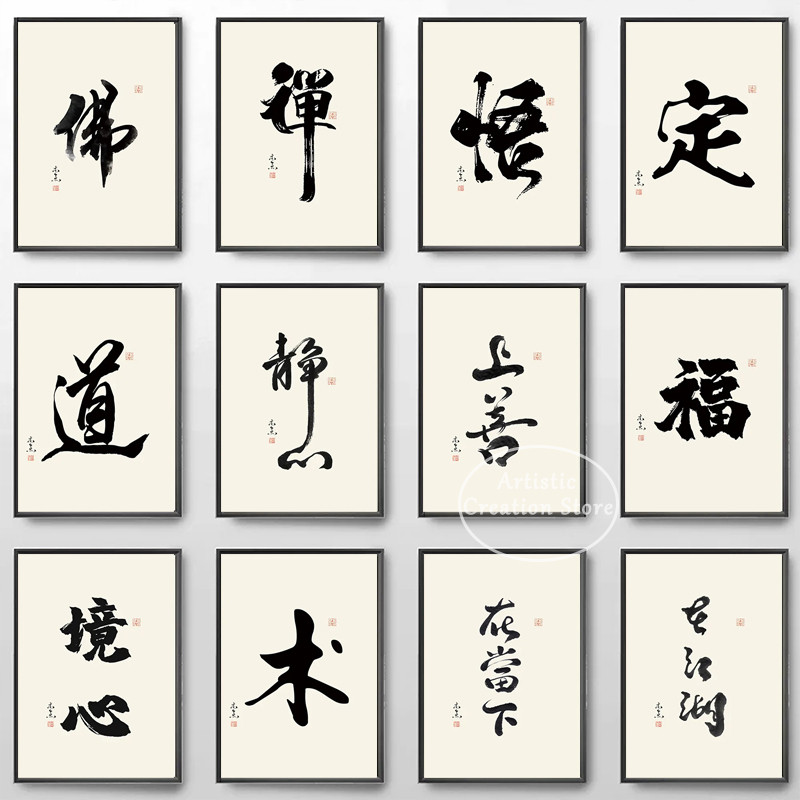 佛
禪
悟
定
道
靜心
上善
福
境心
术
在當下
在江湖
Artistic
Creation Store